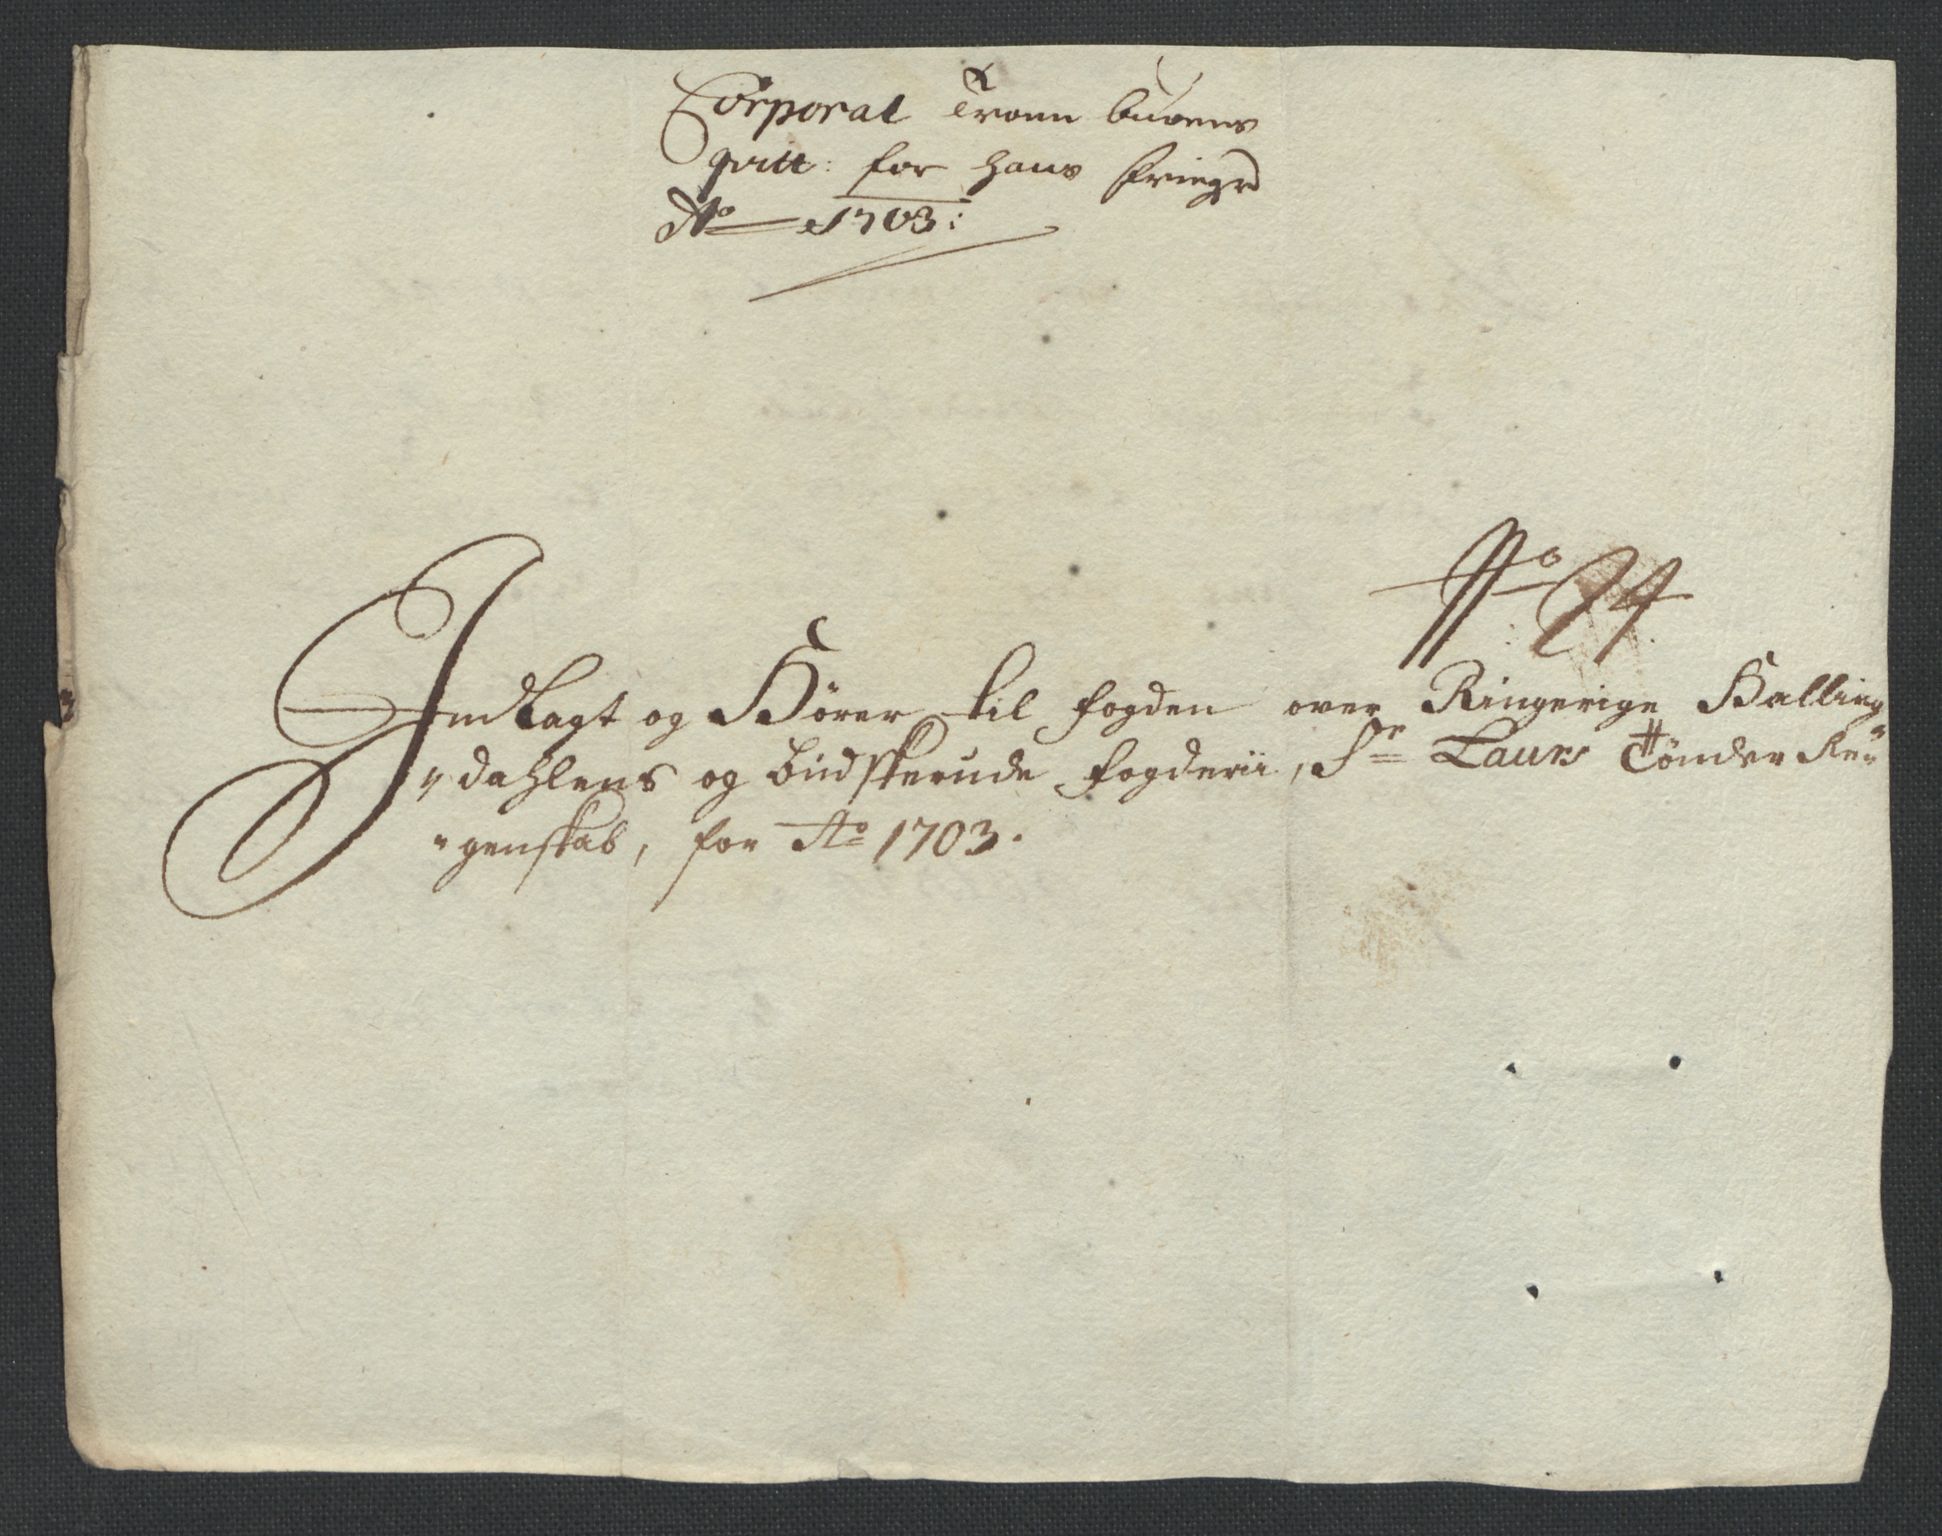 Corporal Tronn buvens
qvitt: for hans friegrd
Ao 1703:
No 24
Indlagt og Hörer til fogden over Ringerige Halling
dahlens og budskerude fogderii, Sr Laurs Tönder Re
genskab, for Ao 1703.